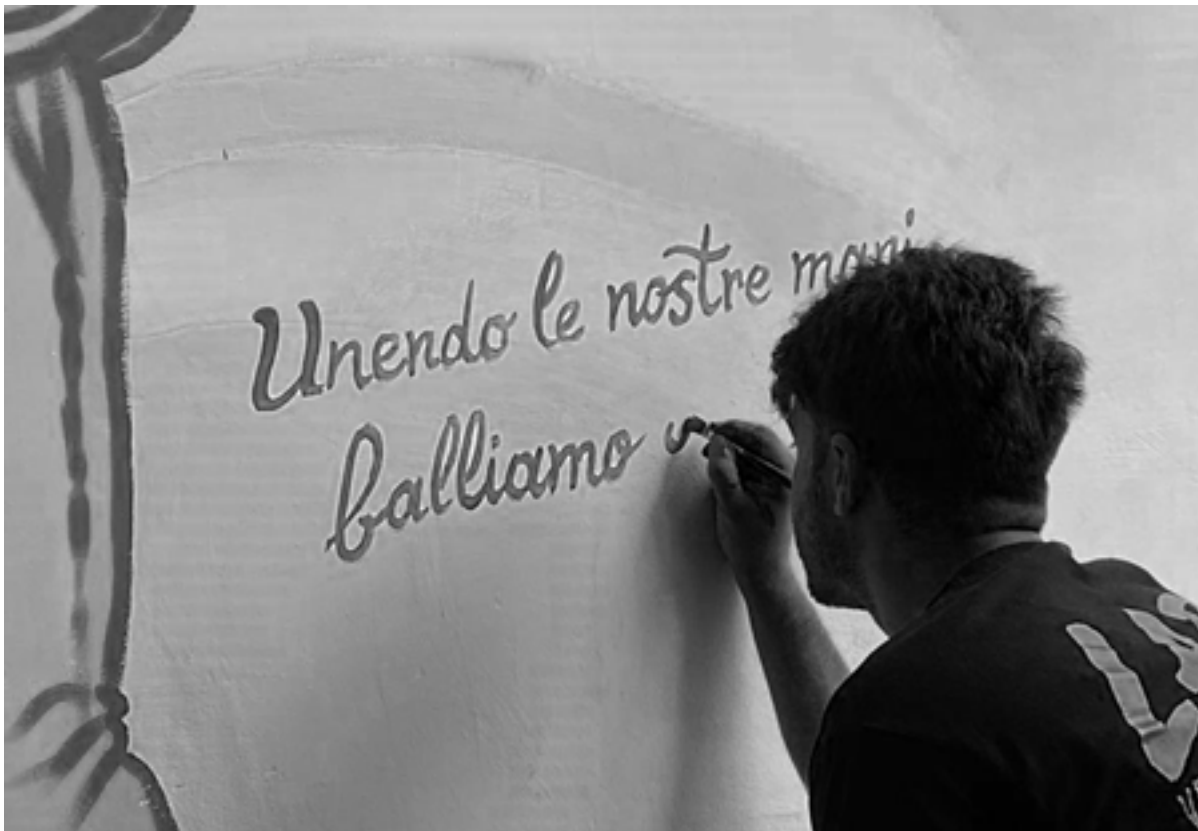 Unendo le nostre mani
balliamo